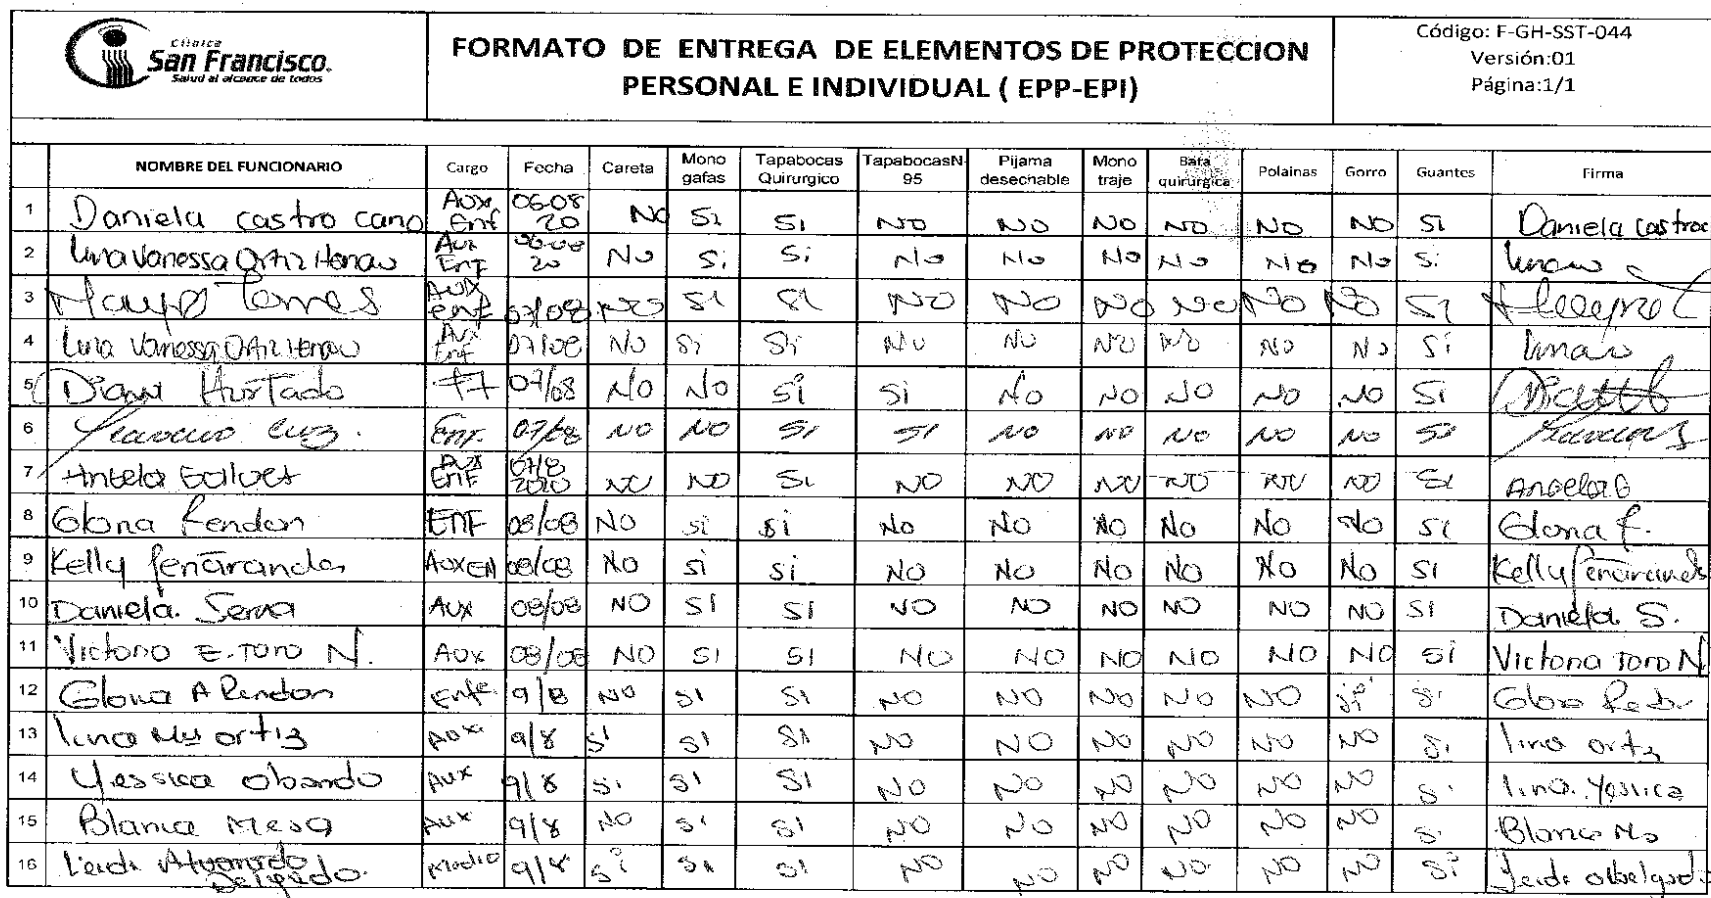 Clínica
San Francisco.
Salud al alcance de todos
FORMATO DE ENTREGA DE ELEMENTOS DE PROTECCION
PERSONAL E INDIVIDUAL ( EPP-EPI)
Código: F-GH-SST-044
Versión:01
Página:1/1
NOMBRE DEL FUNCIONARIO Cargo Fecha Careta Mono gafas Tapabocas Quirurgico TapabocasN-95 Pijama desechable Mono traje Bata quirurgica Polainas Gorro Guantes Firma
1 Daniela castro cano Aux Enf 06-08 20 No Si Si NO NO NO NO NO NO Si Daniela Castro
2 Lina Vanessa Ortiz Henao Aux Enf 06-08 20 No Si Si No No No No No No Si
3 Torres Aux enf 07/08 NO Si Si NO NO NO NO NO NO Si
4 Lina Vanessa Ortiz Henao Aux Enf 07/08 No Si Si No No No No No No Si
5 Diana Hurtado 07/08 No No Si Si No No No No No Si
6 Luz. Enf. 07/08 NO NO Si Si NO NO NO NO NO Si
7 Angela Aux Enf 07/8 2020 NO NO Si NO NO NO NO NO NO Si Angela G
8 Gloria Rendon Enf 08/08 NO Si Si No No No No No No Si Gloria R.
9 Kelly Peñaranda Aux En 08/08 No Si Si No No No No No No Si Kelly Peñaranda
10 Daniela. Serna Aux 08/08 NO Si Si NO NO NO NO NO NO Si Daniela S.
11 Victoria E. Toro N. Aux 08/08 NO Si Si NO NO NO NO NO NO Si Victoria Toro N
12 Gloria A Rendon Enfe 9/8 No Si Si NO NO NO NO NO Si Gloria
13 Lina Ortiz Aux 9/8 Si Si Si NO NO NO NO NO NO Si lina ortiz
14 Yessica Obando Aux 9/8 Si Si Si NO NO NO NO NO NO Si lina. Yessica
15 Blanca Mesa Aux 9/8 NO Si Si NO NO NO NO NO NO Si Blanca Ms
16 Leidi Alvarado Delgado. Medio 9/8 Si Si Si NO NO NO NO NO NO Si